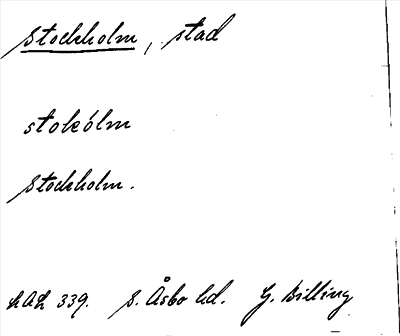 Stockholm, stad
stokólm
Stockholm.
LAL 339. S. Åsbo hd. G. Billing